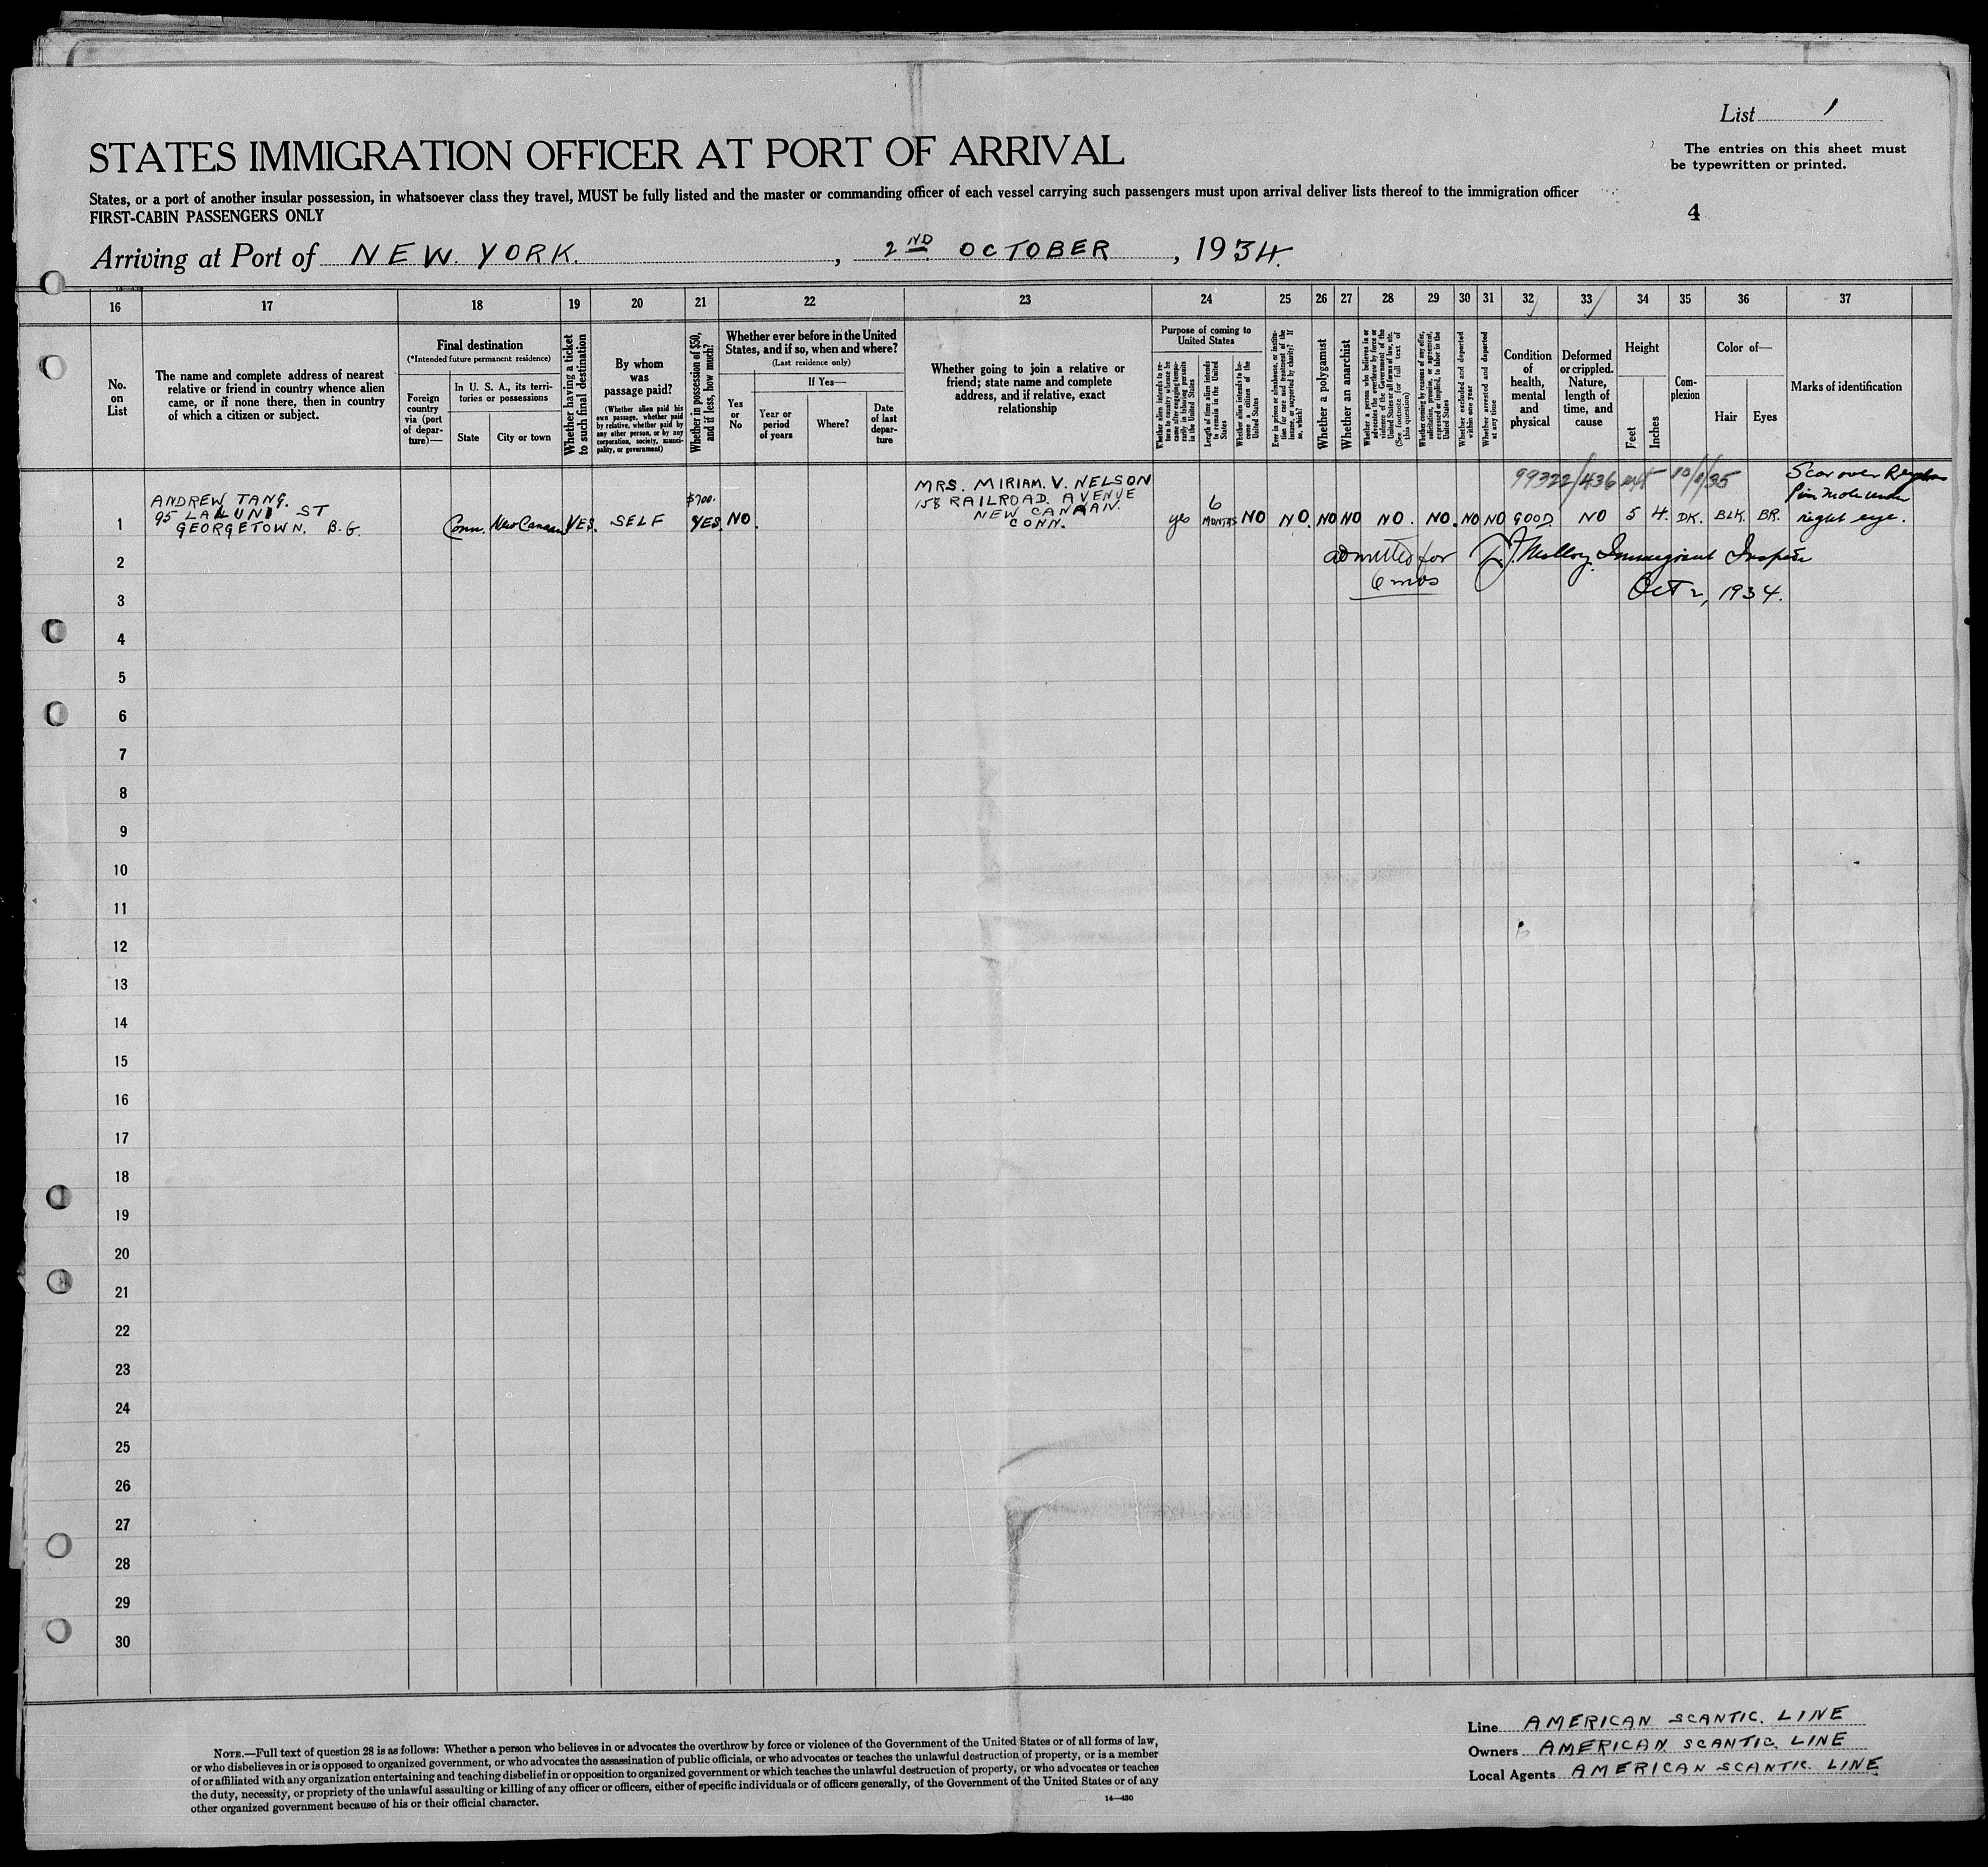 List 1
STATES IMMIGRATION OFFICER AT PORT OF ARRIVAL
The entries on this sheet must
be typewritten or printed.
States, or a port of another insular possession, in whatsoever class they travel, MUST be fully listed and the master or commanding officer of each vessel carrying such passengers must upon arrival deliver lists thereof to the immigration officer
FIRST-CABIN PASSENGERS ONLY
4
Arriving at Port of NEW YORK. , 2ND OCTOBER , 1934.
16 17 18 19 20 21 22 23 24 25 26 27 28 29 30 31 32 33 34 35 36 37
No.
on
List
The name and complete address of nearest
relative or friend in country whence alien
came, or if none there, then in country
of which a citizen or subject.
Final destination
(*Intended future permanent residence)
Foreign
country
via (port
of depar-
ture)—
In U. S. A., its terri-
tories or possessions
State
City or town
Whether having a ticket
to such final destination
By whom
was
passage paid?
(Whether alien paid his
own passage, whether paid
by relative, whether paid by
any other person, or by any
corporation, society, munici-
pality, or government)
Whether in possession of $50,
and if less, how much?
Whether ever before in the United
States, and if so, when and where?
(Last residence only)
Yes
or
No
If Yes—
Year or
period
of years
Where?
Date
of last
depar-
ture
Whether going to join a relative or
friend; state name and complete
address, and if relative, exact
relationship
Purpose of coming to
United States
Whether alien intends to re-
turn to country whence he
came after engaging tempo-
rarily in laboring pursuits
in the United States
Length of time alien intends
to remain in the United
States
Whether alien intends to be-
come a citizen of the
United States
Ever in prison or almshouse, or institu-
tion for care and treatment of the
insane, or supported by charity? If
so, which?
Whether a polygamist
Whether an anarchist
Whether a person who believes in or
advocates the overthrow by force or
violence of the Government of the
United States or all forms of law, etc.
(See footnote for full text of
this question)
Whether coming by reasons of any offer,
solicitation, promise, or agreement,
expressed or implied, to labor in the
United States
Whether excluded and deported
within one year
Whether arrested and deported
at any time
Condition
of
health,
mental
and
physical
Deformed
or crippled.
Nature,
length of
time, and
cause
Height
Feet
Inches
Com-
plexion
Color of—
Hair
Eyes
Marks of identification
99322/436
1
ANDREW TANG.
95 LALUNI ST
GEORGETOWN. B.G.
Conn. New Canaan YES. SELF
$700.
YES. NO.
MRS. MIRIAM. V. NELSON
158 RAILROAD. AVENUE
NEW CANAAN.
CONN.
yes
6
MONTHS NO NO. NO NO NO. NO. NO NO GOOD NO 5 4. DK. BLK. BR.
Scar over
mole under
right eye.
2
admitted for
6 mos
Molloy. Immigrant
3
Oct 2, 1934.
4
5
6
7
8
9
10
11
12
13
14
15
16
17
18
19
20
21
22
23
24
25
26
27
28
29
30
NOTE.—Full text of question 28 is as follows: Whether a person who believes in or advocates the overthrow by force or violence of the Government of the United States or of all forms of law,
or who disbelieves in or is opposed to organized government, or who advocates the assassination of public officials, or who advocates or teaches the unlawful destruction of property, or is a member
of or affiliated with any organization entertaining and teaching disbelief in or opposition to organized government or which teaches the unlawful destruction of property, or who advocates or teaches
the duty, necessity, or propriety of the unlawful assaulting or killing of any officer or officers, either of specific individuals or of officers generally, of the Government of the United States or of any
other organized government because of his or their official character.
14—430
Line AMERICAN SCANTIC. LINE
Owners AMERICAN SCANTIC. LINE
Local Agents AMERICAN SCANTIC. LINE